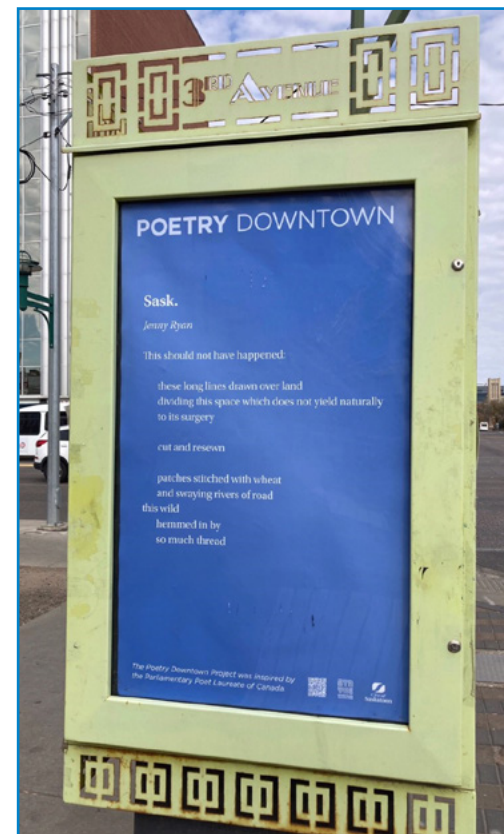 3RD AVENUE
POETRY DOWNTOWN
Sask.
Jenny Ryan
This should not have happened:
these long lines drawn over land
dividing this space which does not yield naturally
to its surgery
cut and resewn
patches stitched with wheat
and swaying rivers of road
this wild
hemmed in by
so much thread
The Poetry Downtown Project was inspired by
the Parliamentary Poet Laureate of Canada
City of
Saskatoon